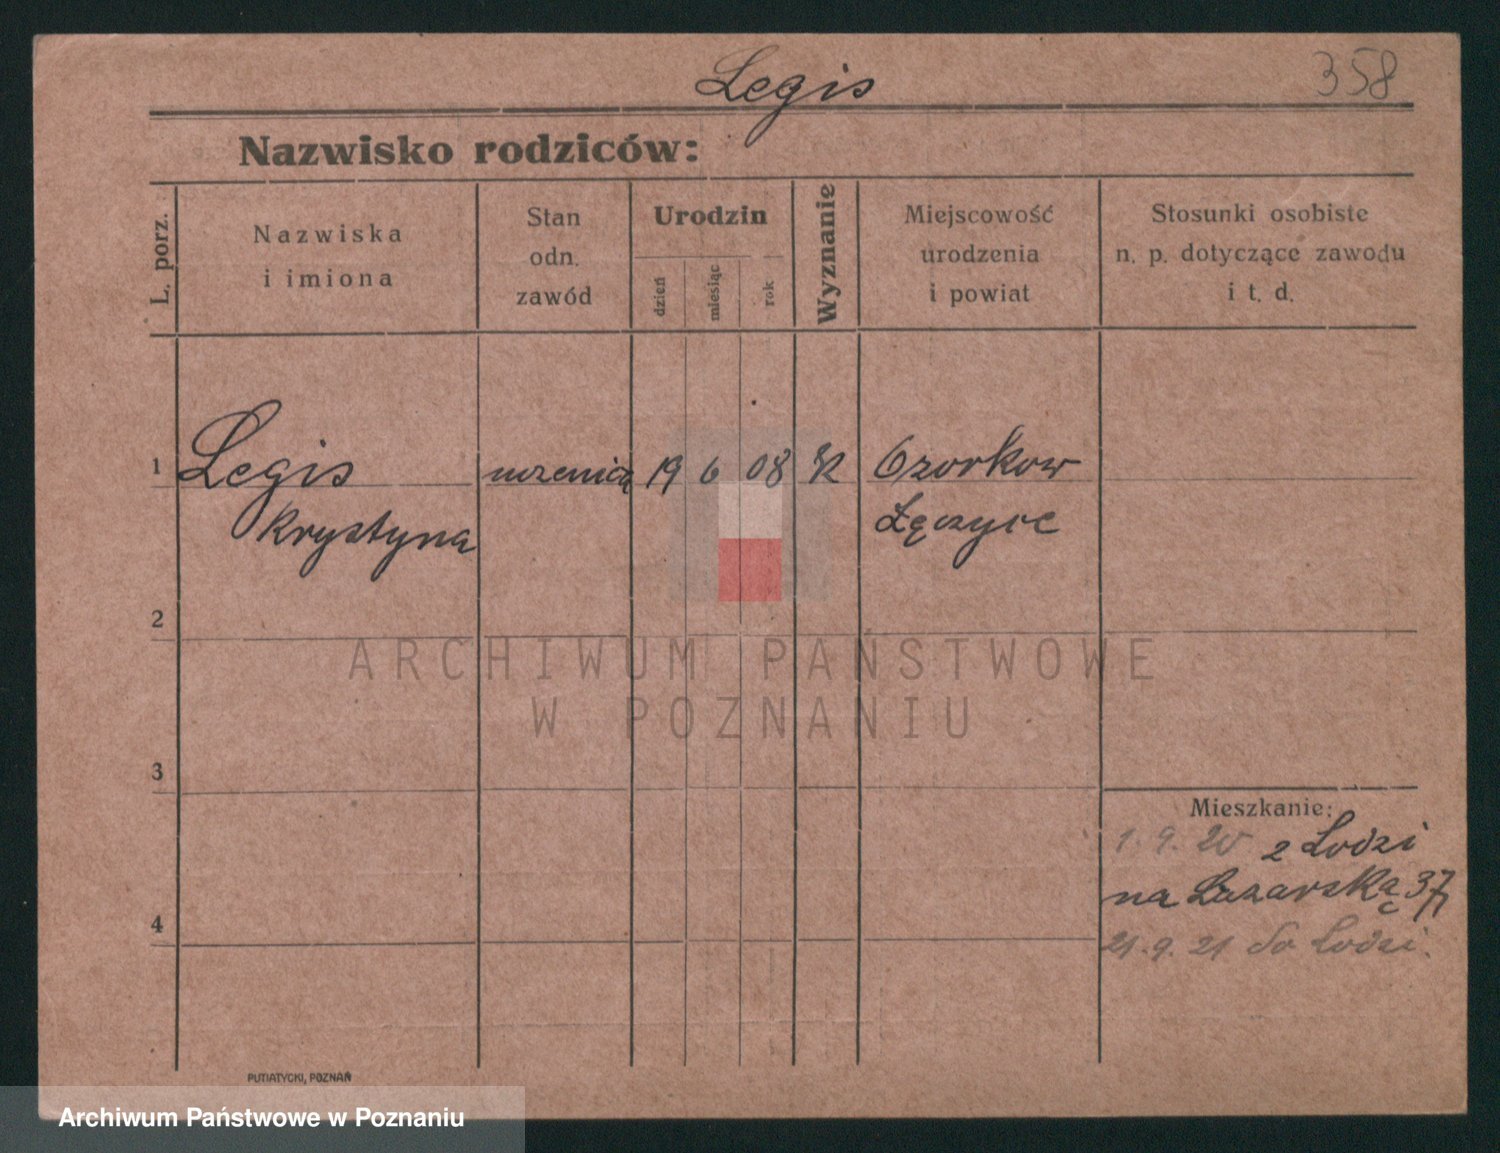 Legis
358
Nazwisko rodziców:
L. porz.
Nazwiska
i imiona
Stan
odn.
zawód
Urodzin
dzień
miesiąc
rok
Wyznanie
Miejscowość
urodzenia
i powiat
Stosunki osobiste
n. p. dotyczące zawodu
i t. d.
1 Legis uczenica 19 6 08 Ozorkow
Krystyna Łęczyce
2
ARCHIWUM PAŃSTWOWE
W POZNANIU
3
Mieszkanie:
1. 9. 20 z Lodzi
na Lazarską 37
4
21. 9. 21 do Lodzi.
PUTIATYCKI, POZNAŃ
Archiwum Państwowe w Poznaniu